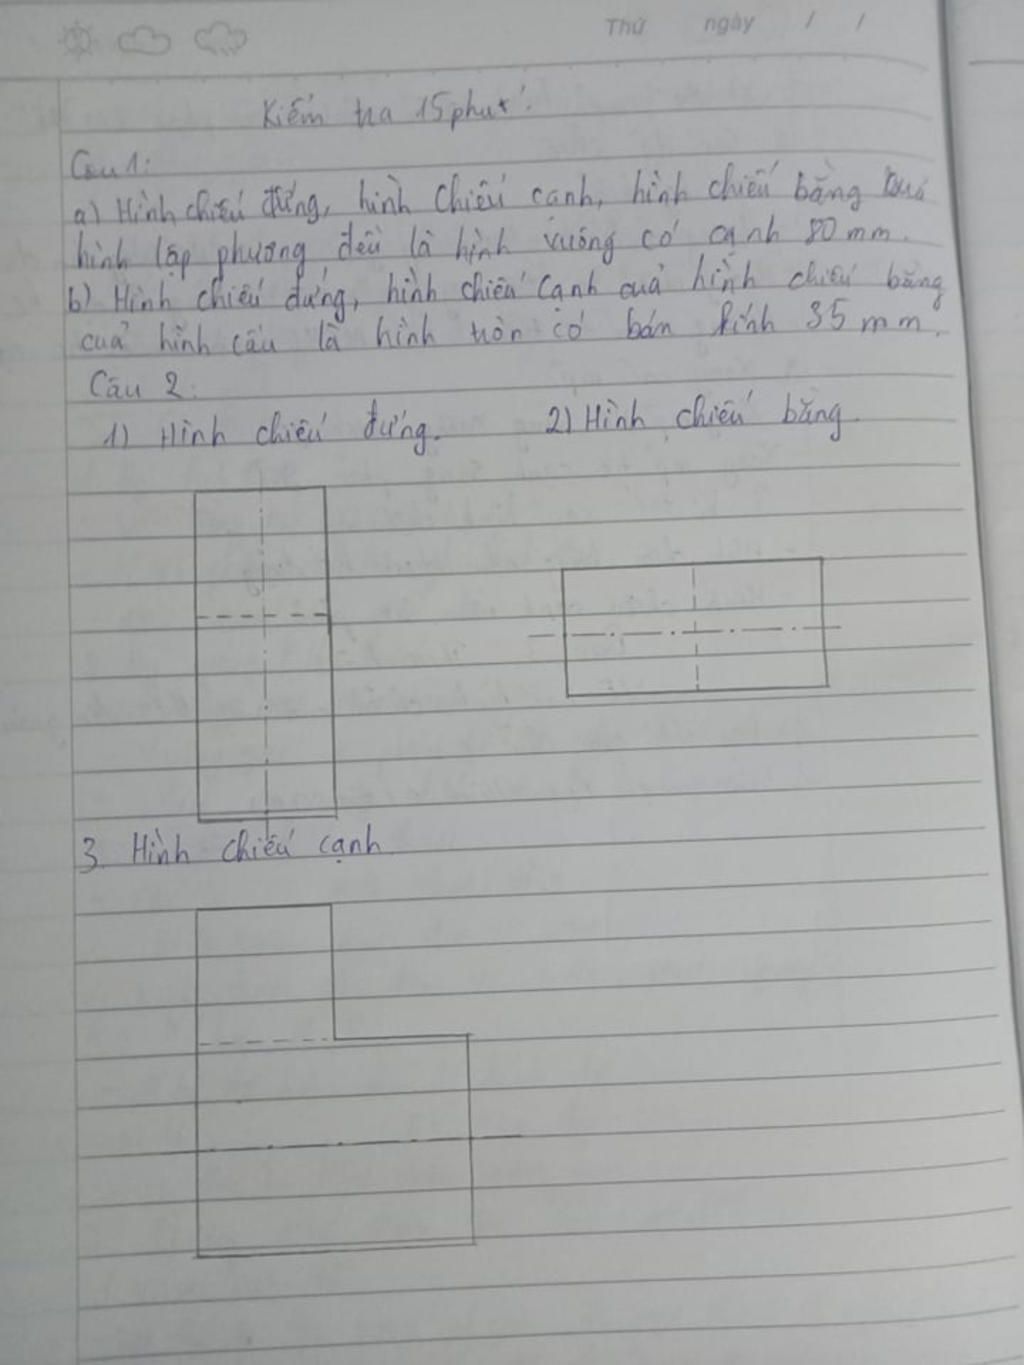 Thứ ngày / /
Kiểm tra 15 phút.
Câu 1:
a) Hình chiếu đứng, hình chiếu cạnh, hình chiếu bằng của
hình lập phương đều là hình vuông có cạnh 80 mm.
b) Hình chiếu đứng, hình chiếu cạnh của hình chiếu bằng
của hình cầu là hình tròn có bán kính 35 mm.
Câu 2:
1) Hình chiếu đứng. 2) Hình chiếu bằng.
3. Hình chiếu cạnh